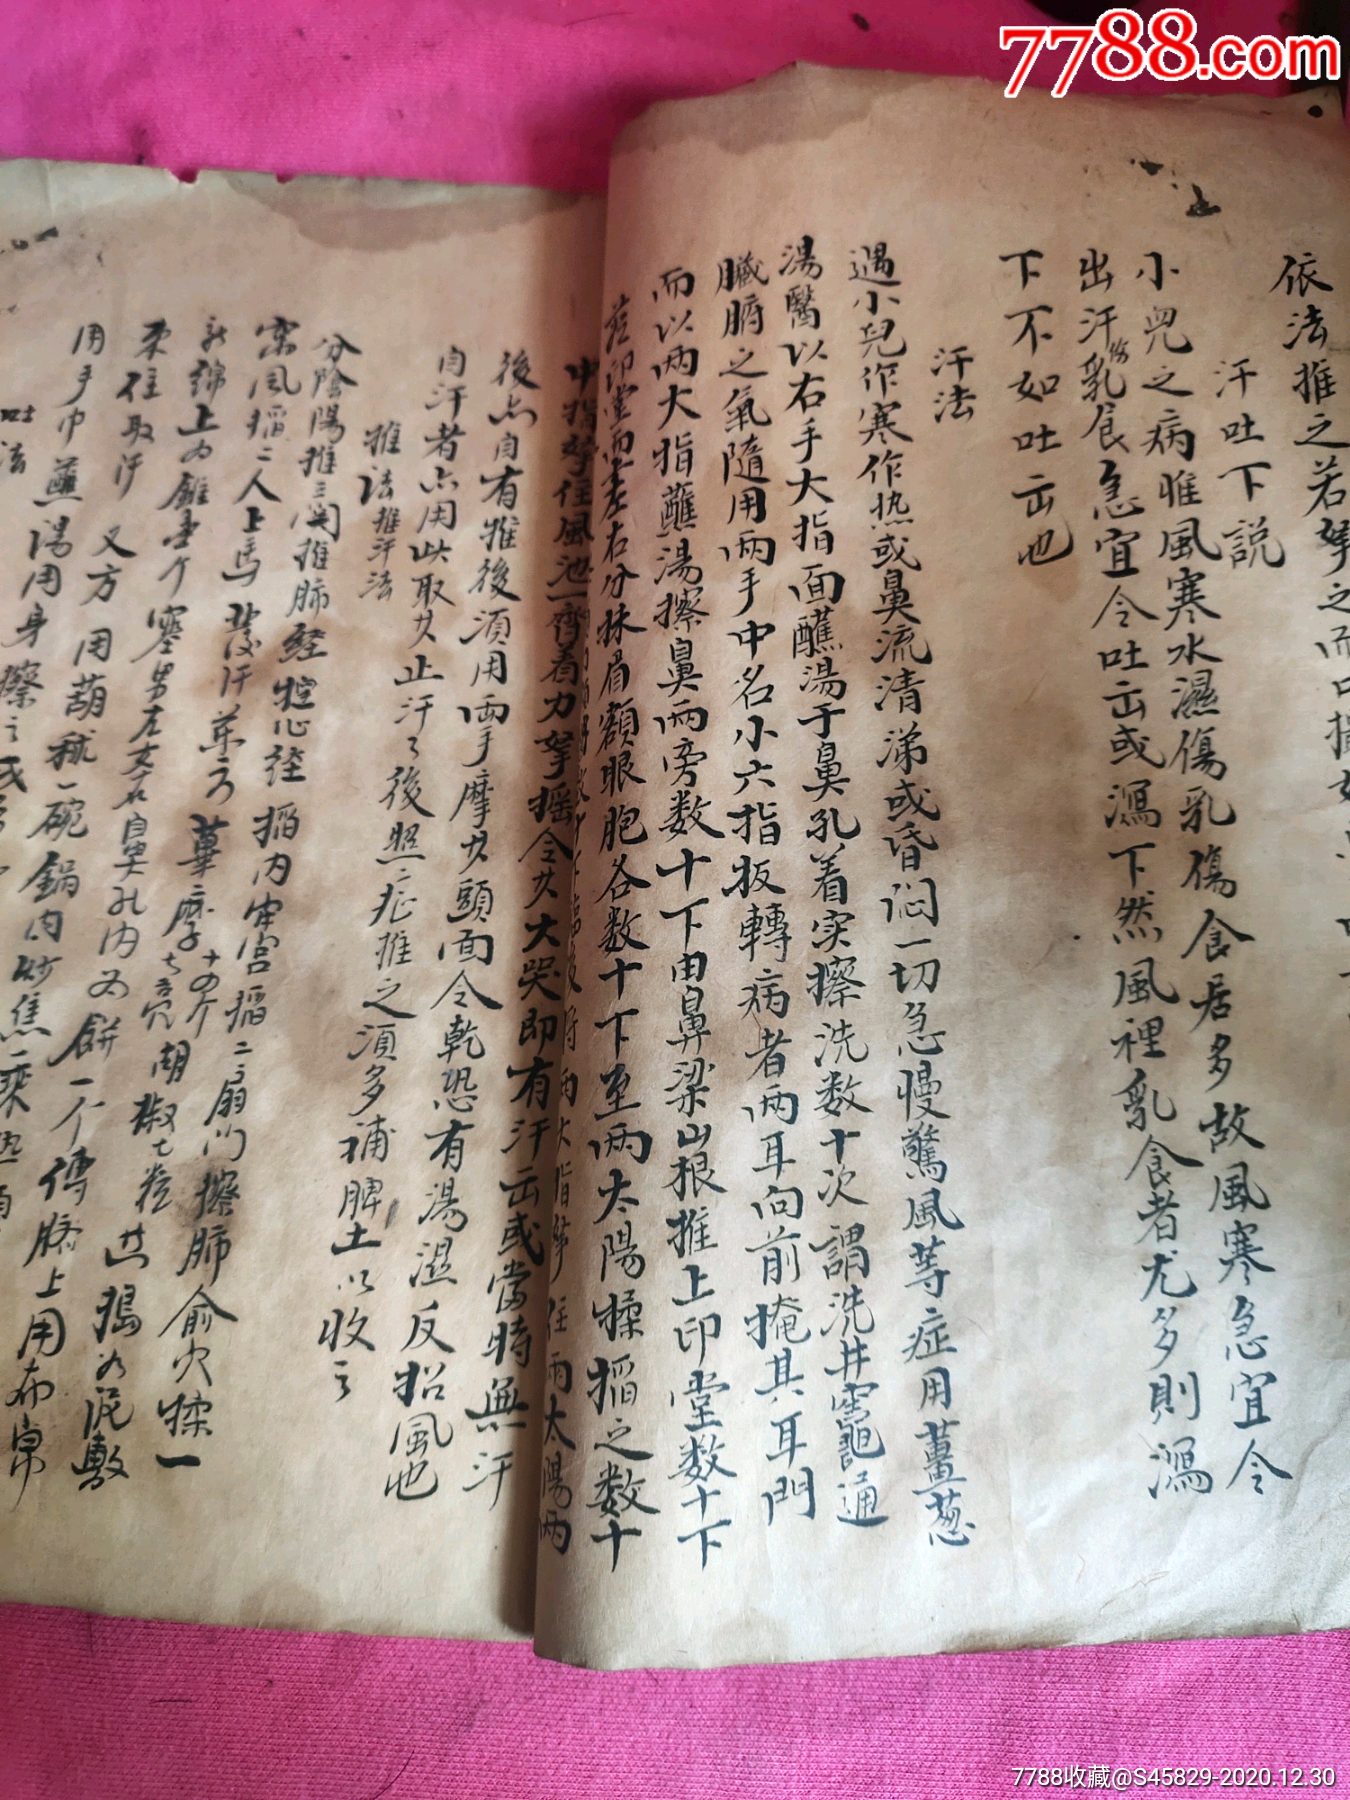 7788.com
依法推之若拏之而口撮
汗吐下説
小兒之病惟風寒水濕傷乳傷食居多故風寒急宜令
出汗傷乳食急宜令吐出或瀉下然風裡乳食者尤多則瀉
下不如吐出也
汗法
遇小兒作寒作热或鼻流清涕或昏闷一切急慢驚風等症用薑葱
湯醫以右手大指面蘸湯于鼻孔着实擦洗数十次謂洗井竈通
臓腑之氣隨用两手中名小六指扳轉病者两耳向前掩其耳門
而以两大指蘸湯擦鼻两旁数十下由鼻梁山根推上印堂数十下
從印堂而上左右分抹眉額眼胞各数十下至两太陽揉掐之数十
将两大指拏住两太陽两
中指拏住風池一齊着力拏摇令其大哭即有汗出或當時無汗
後点自有推後須用両手摩其頭面令乾恐有湯濕反招風也
自汗者点用此取其止汗之後照症推之須多補脾土以收之
推法推汗法
分陰陽推三関推肺経推心経掐内宫掐二扇门擦肺俞穴揉一
窝風掐二人上馬發汗药方蓖麻十四个
新綿上为錐壹个塞男左女右鼻孔内
七壳胡椒七粒共搗为泥敷
来往取汗
又方用葫
一碗鍋内炒焦
为餅一个傅臍上用布帛
用手巾蘸湯用身擦之或
乘热
吐法
7788收藏@S45829-2020.12.30